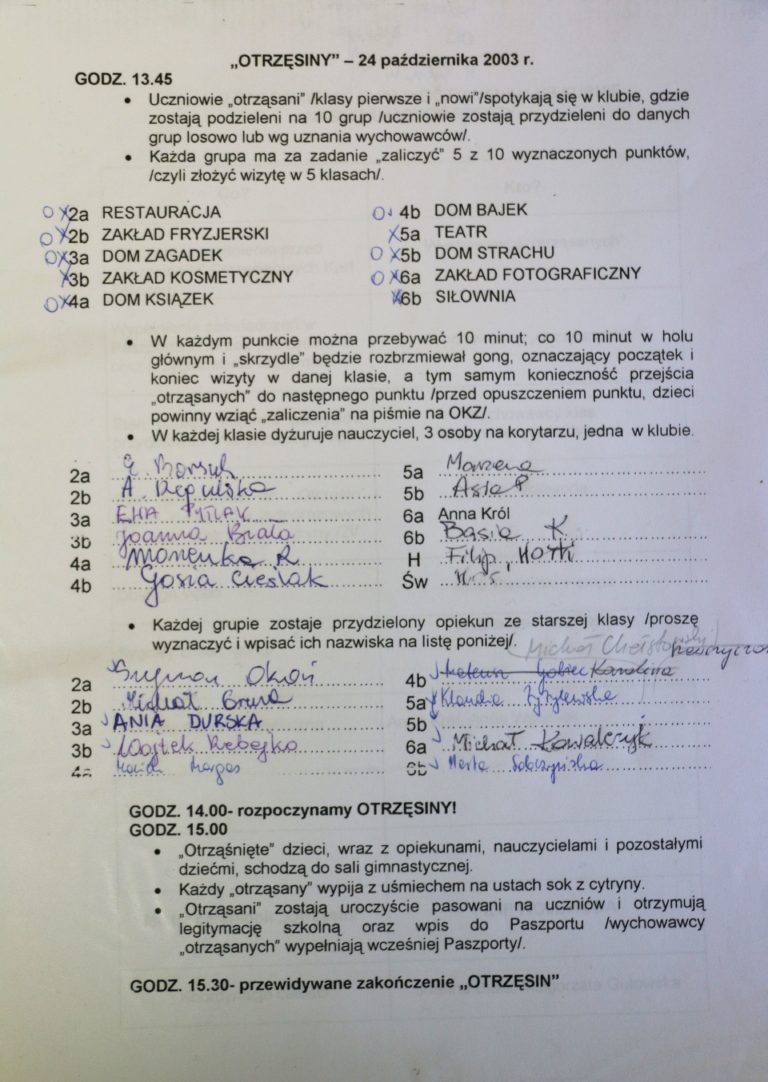 „OTRZĘSINY” – 24 października 2003 r.
GODZ. 13.45
• Uczniowie „otrząsani” /klasy pierwsze i „nowi”/spotykają się w klubie, gdzie
zostają podzieleni na 10 grup /uczniowie zostają przydzieleni do danych
grup losowo lub wg uznania wychowawców/.
• Każda grupa ma za zadanie „zaliczyć” 5 z 10 wyznaczonych punktów,
/czyli złożyć wizytę w 5 klasach/.
2a RESTAURACJA
2b ZAKŁAD FRYZJERSKI
3a DOM ZAGADEK
3b ZAKŁAD KOSMETYCZNY
4a DOM KSIĄZEK
4b DOM BAJEK
5a TEATR
5b DOM STRACHU
6a ZAKŁAD FOTOGRAFICZNY
6b SIŁOWNIA
• W każdym punkcie można przebywać 10 minut; co 10 minut w holu
głównym i „skrzydle” będzie rozbrzmiewał gong, oznaczający początek i
koniec wizyty w danej klasie, a tym samym konieczność przejścia
„otrząsanych” do następnego punktu /przed opuszczeniem punktu, dzieci
powinny wziąć „zaliczenia” na piśmie na OKZ/.
• W każdej klasie dyżuruje nauczyciel, 3 osoby na korytarzu, jedna w klubie.
2a
2b A.
3a
3b Joanna Biała
4a Monenka R
4b Gosia Cieślak
5a Marzena
5b Asia P
6a Anna Król
6b Basia K
H Filip,
Św
• Każdej grupie zostaje przydzielony opiekun ze starszej klasy /proszę
wyznaczyć i wpisać ich nazwiska na listę poniżej/. Michał
2a Szymon Okoń
2b Michał
3a ANIA DURSKA
3b Wojtek Rebejko
4a
4b Karolina
5a Klaudia Żyżylewska
5b
6a Michał Kowalczyk
6b Marta
GODZ. 14.00- rozpoczynamy OTRZĘSINY!
GODZ. 15.00
• „Otrząśnięte” dzieci, wraz z opiekunami, nauczycielami i pozostałymi
dziećmi, schodzą do sali gimnastycznej.
• Każdy „otrząsany” wypija z uśmiechem na ustach sok z cytryny.
• „Otrząsani” zostają uroczyście pasowani na uczniów i otrzymują
legitymację szkolną oraz wpis do Paszportu /wychowawcy
„otrząsanych” wypełniają wcześniej Paszporty/.
GODZ. 15.30- przewidywane zakończenie „OTRZĘSIN”